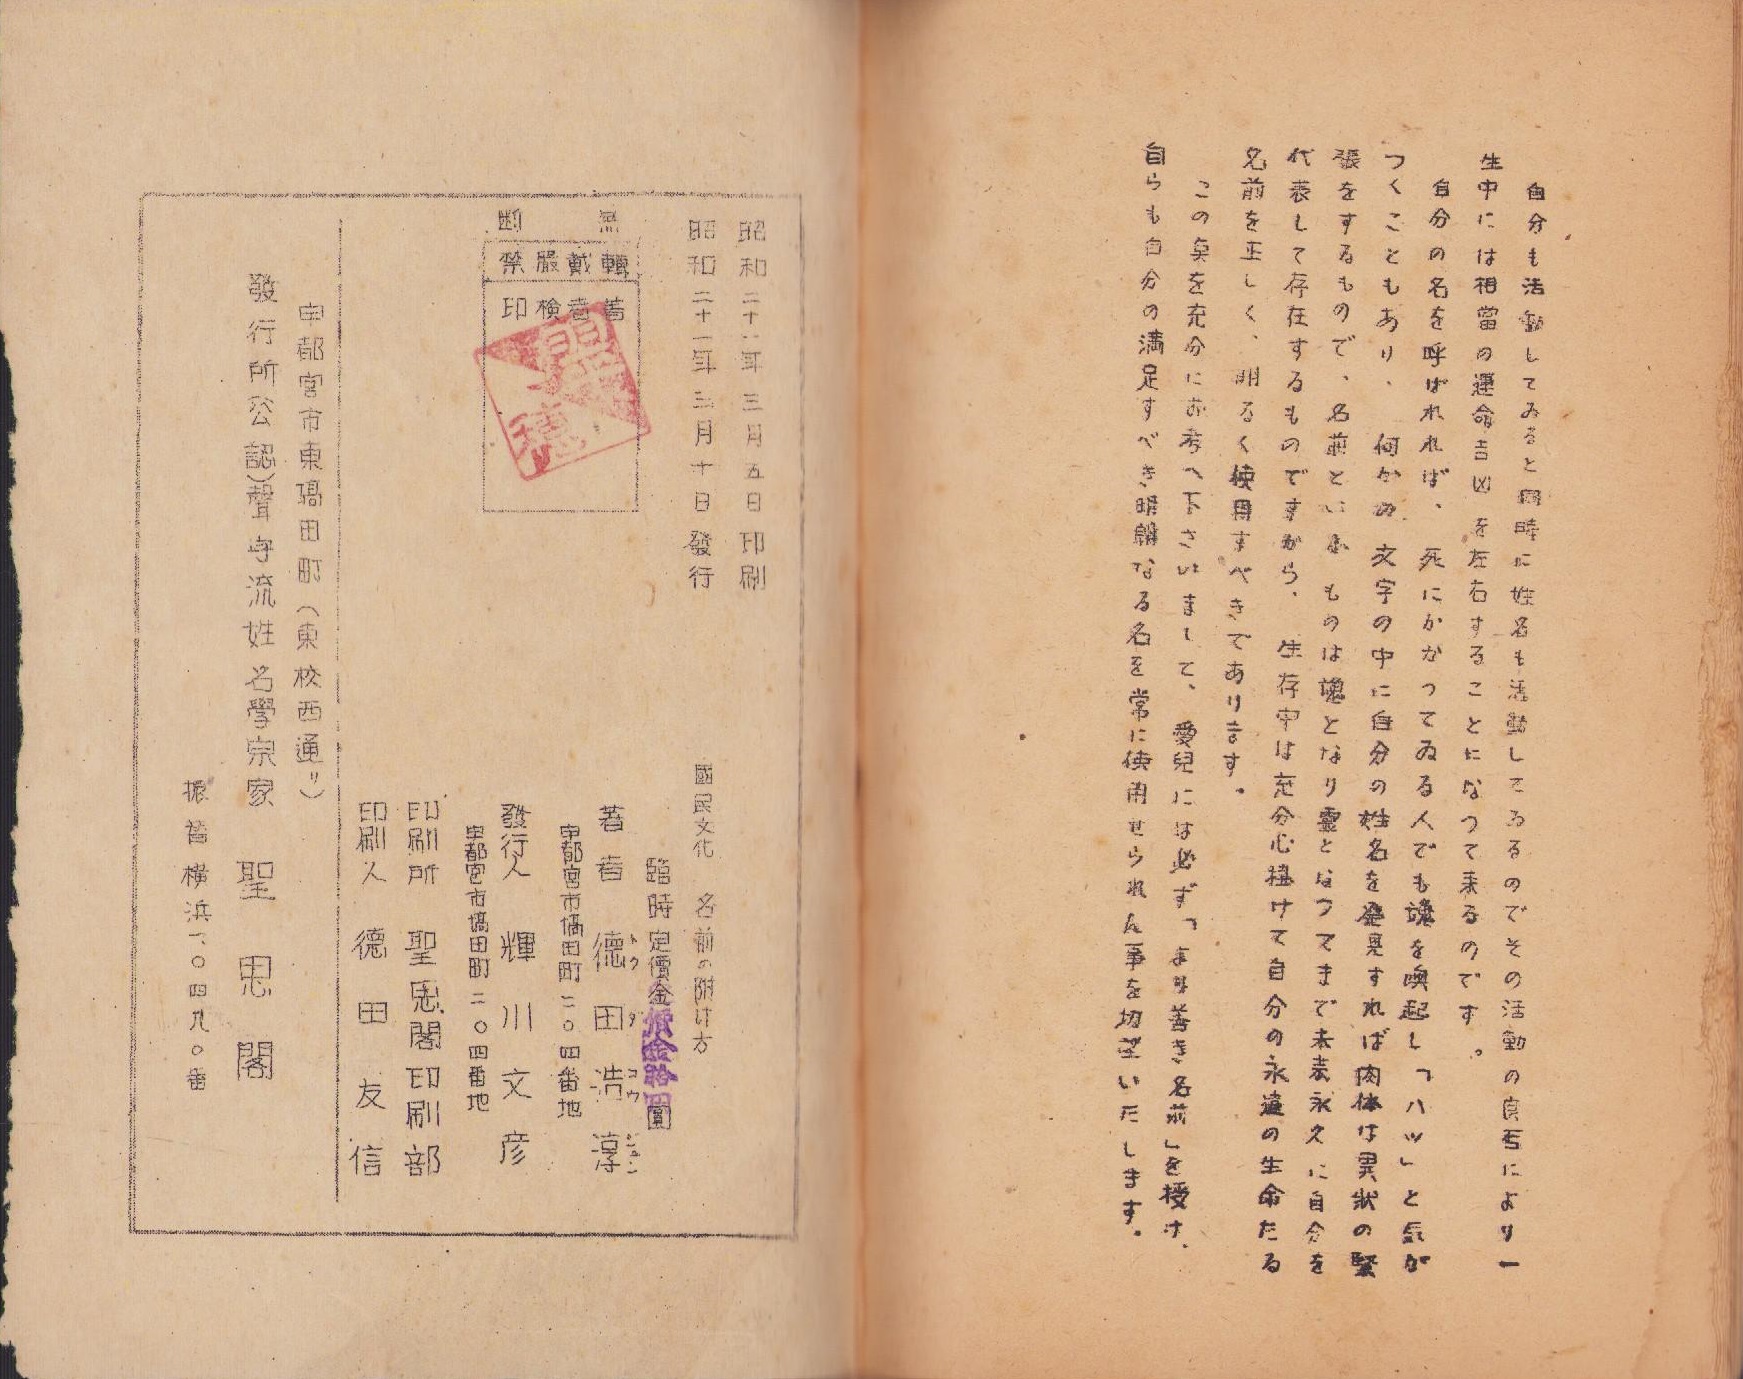 自分も活動してゐると同時に姓名も活動してゐるのでその活動の良否により一
生中には相當の運命吉凶を左右することになつて来るのです。
自分の名を呼ばれれば、死にかかつてゐる人でも魂を喚起し「ハッ」と気が
つくこともあり、何かの文字の中に自分の姓名を発見すれば肉体は異状の緊
張をするもので、名前といふものは魂となり霊となつてまで未来永久に自分を
代表して存在するものですから、生存中は充分心掛けて自分の永遠の生命たる
名前を正しく、明るく使用すべきであります。
この奌を充分にお考へ下さいまして、愛兒には必ず「より善き名前」を授け、
自らも自分の満足すべき明朗なる名を常に使用せられん事を切望いたします。
昭和二十一年三月五日印刷
昭和二十一年三月十日發行
國民文化 名前の附け方
臨時定價金拾圓
無斷
轉載嚴禁
著者検印
著者 徳田浩淳
トクダコウジュン
宇都宮市塙田町二〇四番地
發行人 輝川文彦
宇都宮市塙田町二〇四番地
印刷所 聖思閣印刷部
印刷人 徳田友信
宇都宮市東塙田町(東校西通リ)
發行所 公認)聲字流姓名學宗家 聖思閣
振替横浜一、〇四九〇番